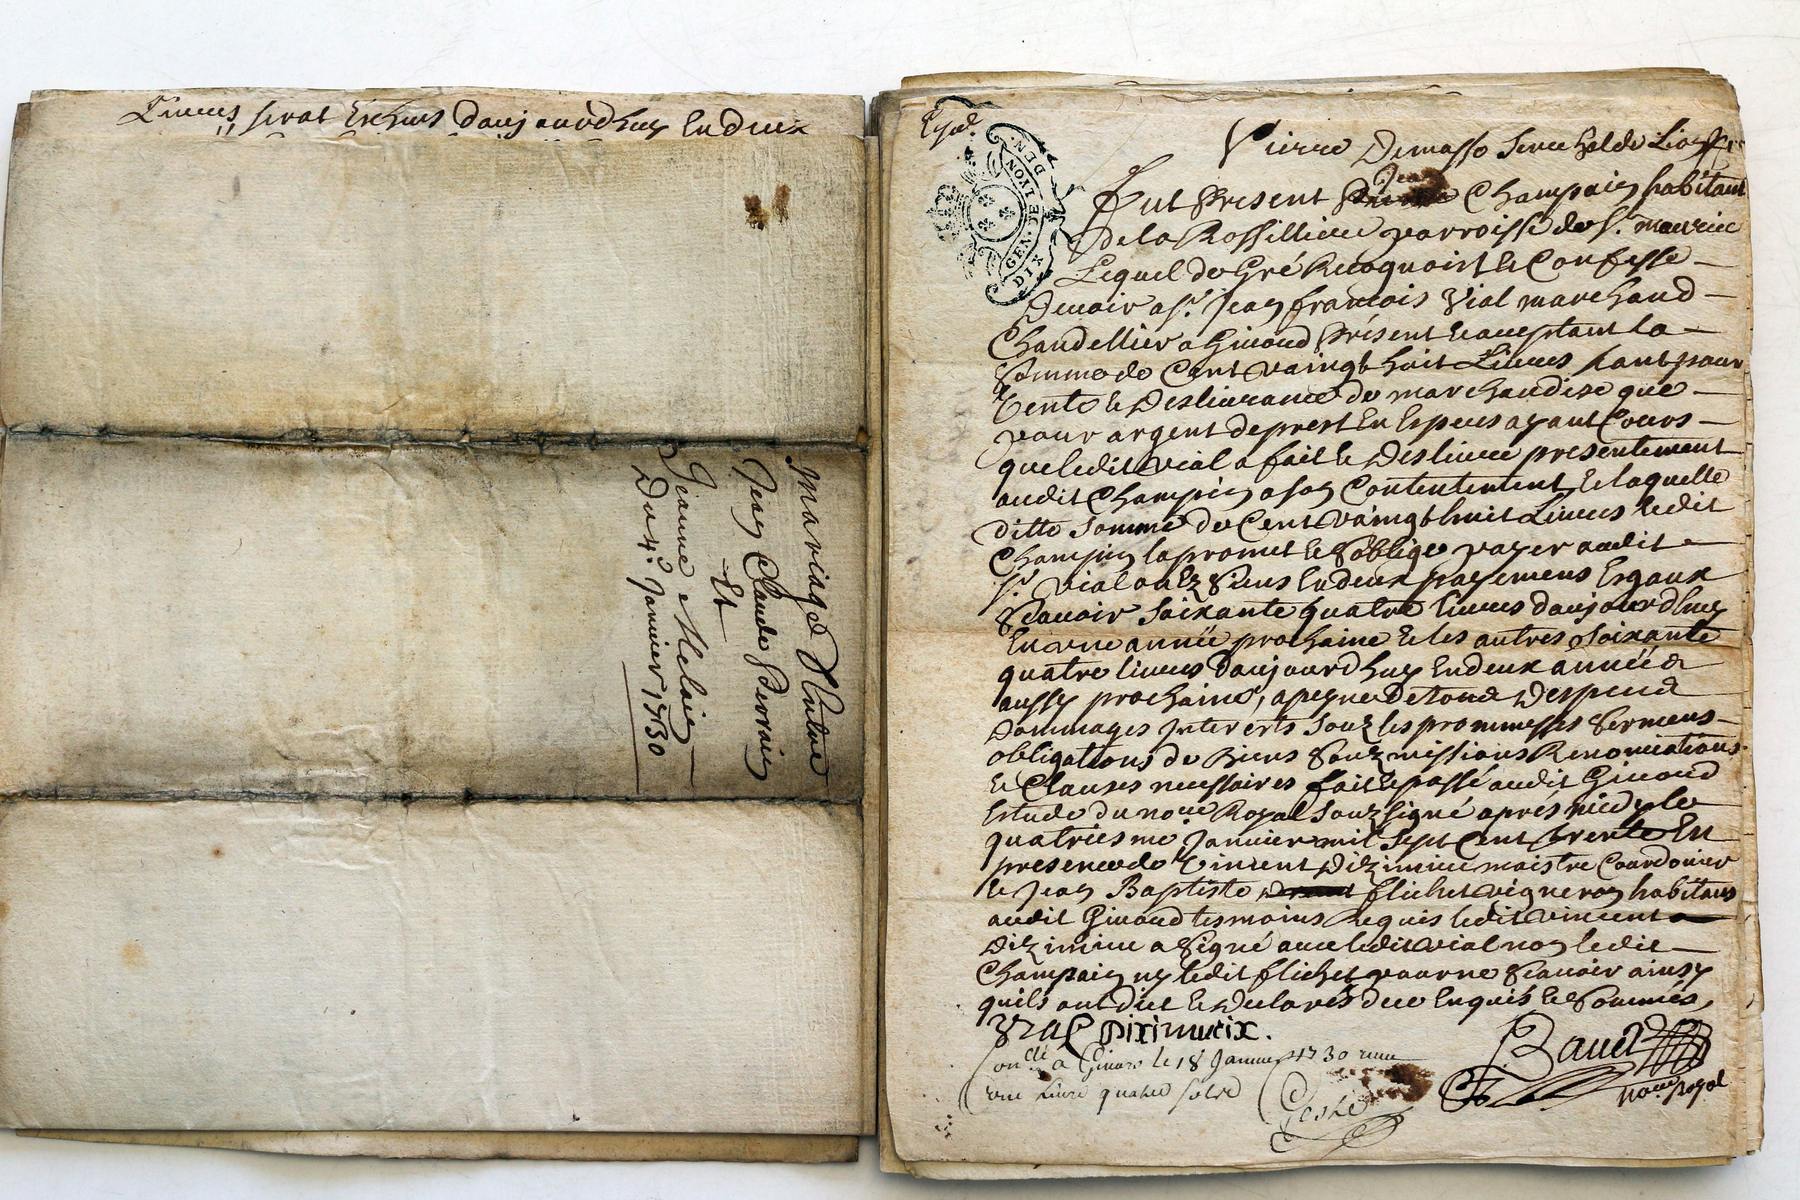 Livres seront Escheus daujourdhuy En deux
Mariage Entre
Jean Claude
Et
Jeanne
Du 4e Janvier 1730
GEN. DE LYON
DIX DEN.
Pierre Demasso Senechal de Lion
Jean
Fut Present Champain habitant
de la Rossilliere parroisse de St. maurice
Lequel de Gré Recognoist & Confesse
Devoir a Sr. Jean francois Vial marchand
Chandellier a Givord Présent & acceptant la
Somme de Cent vaingt huit Livres tant pour
Vente & Deslivrance de marchandise que
pour argent de prest En Especes ayant Cours
que ledit Vial a fait & Deslivré presentement
audit Champain a son Contentement & laquelle
ditte Somme de Cent vaingt huit Livres ledit
Champin la promet & soblige payer audit
Sr. Vial ou Ez Siens En deux payemens Esgaux
Scavoir Soixante quatre livres daujourdhuy
En une année prochaine & les autres Soixante
quatre livres daujourdhuy En deux année
aussy prochaine, a peyne de tous Despens
Dommages Interests Souz les prommesses Sermens
obligations de Biens Souzmissions Renonciations
& Clauses necessaires fait & passé audit Givord
Estude du nore Royal Souzsigné apres midy le
quatriesme Janvier mil Sept Cent trente En
presence de Vincent maistre Courdonier
& Jean Baptiste flichet vigneron habitans
audit Givord tesmoins Requis ledit Vincent
a Signé avec ledit Vial non ledit
Champain ny ledit flichet pour ne Scavoir ainsy
quils ont dit & Declarés de ce Enquis & Sommés
Vial
nore royal
a Givors le 18 Janvier 1730
une livre quatre sols